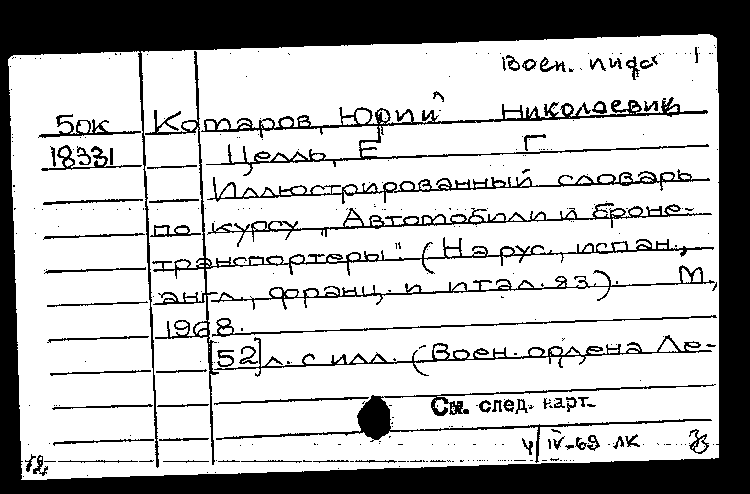 Воен. 1
Бок Котаров, Юрий Николаевич
18331 Целль, Е Г
Иллюстрированный словарь
по курсу „Автомобили и броне-
транспортеры". (На рус., испан.,
англ., франц. и итал. яз.). М.,
1968.
[52] л. с илл. (Воен. ордена Ле-
См. след. карт.
4/IV-69 ЛК